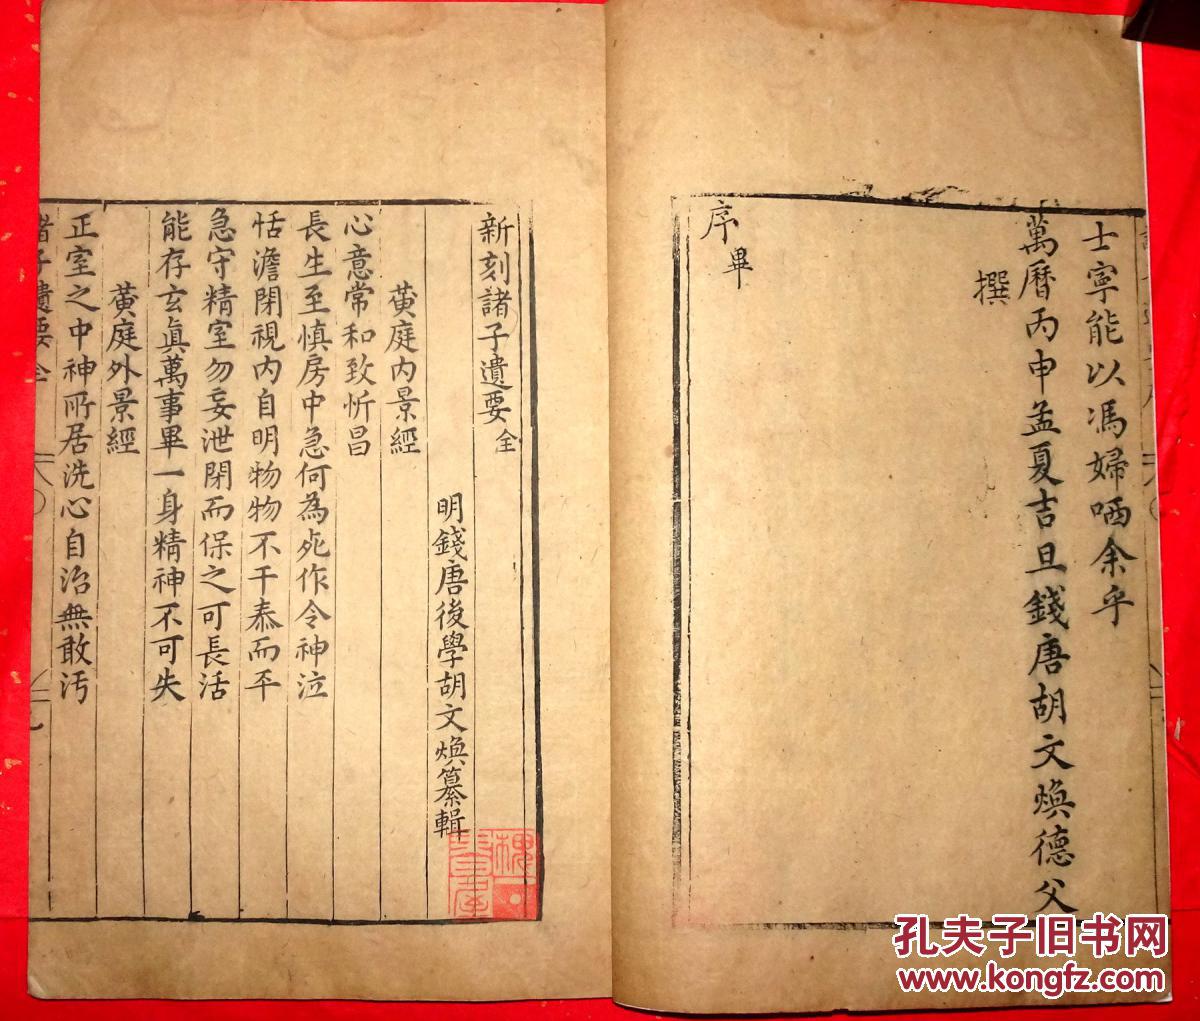 士寧能以馮婦哂余乎
萬曆丙申孟夏吉旦錢唐胡文煥德父
撰
序畢
新刻諸子遺要全
明錢唐後學胡文煥纂輯
黃庭內景經
心意常和致忻昌
長生至慎房中急何為死作令神泣
恬澹閉視內自明物物不干泰而平
急守精室勿妄泄閉而保之可長活
能存玄眞萬事畢一身精神不可失
黃庭外景經
正室之中神所居洗心自治無敢汚
諸子遺要全
孔夫子旧书网
www.kongfz.com